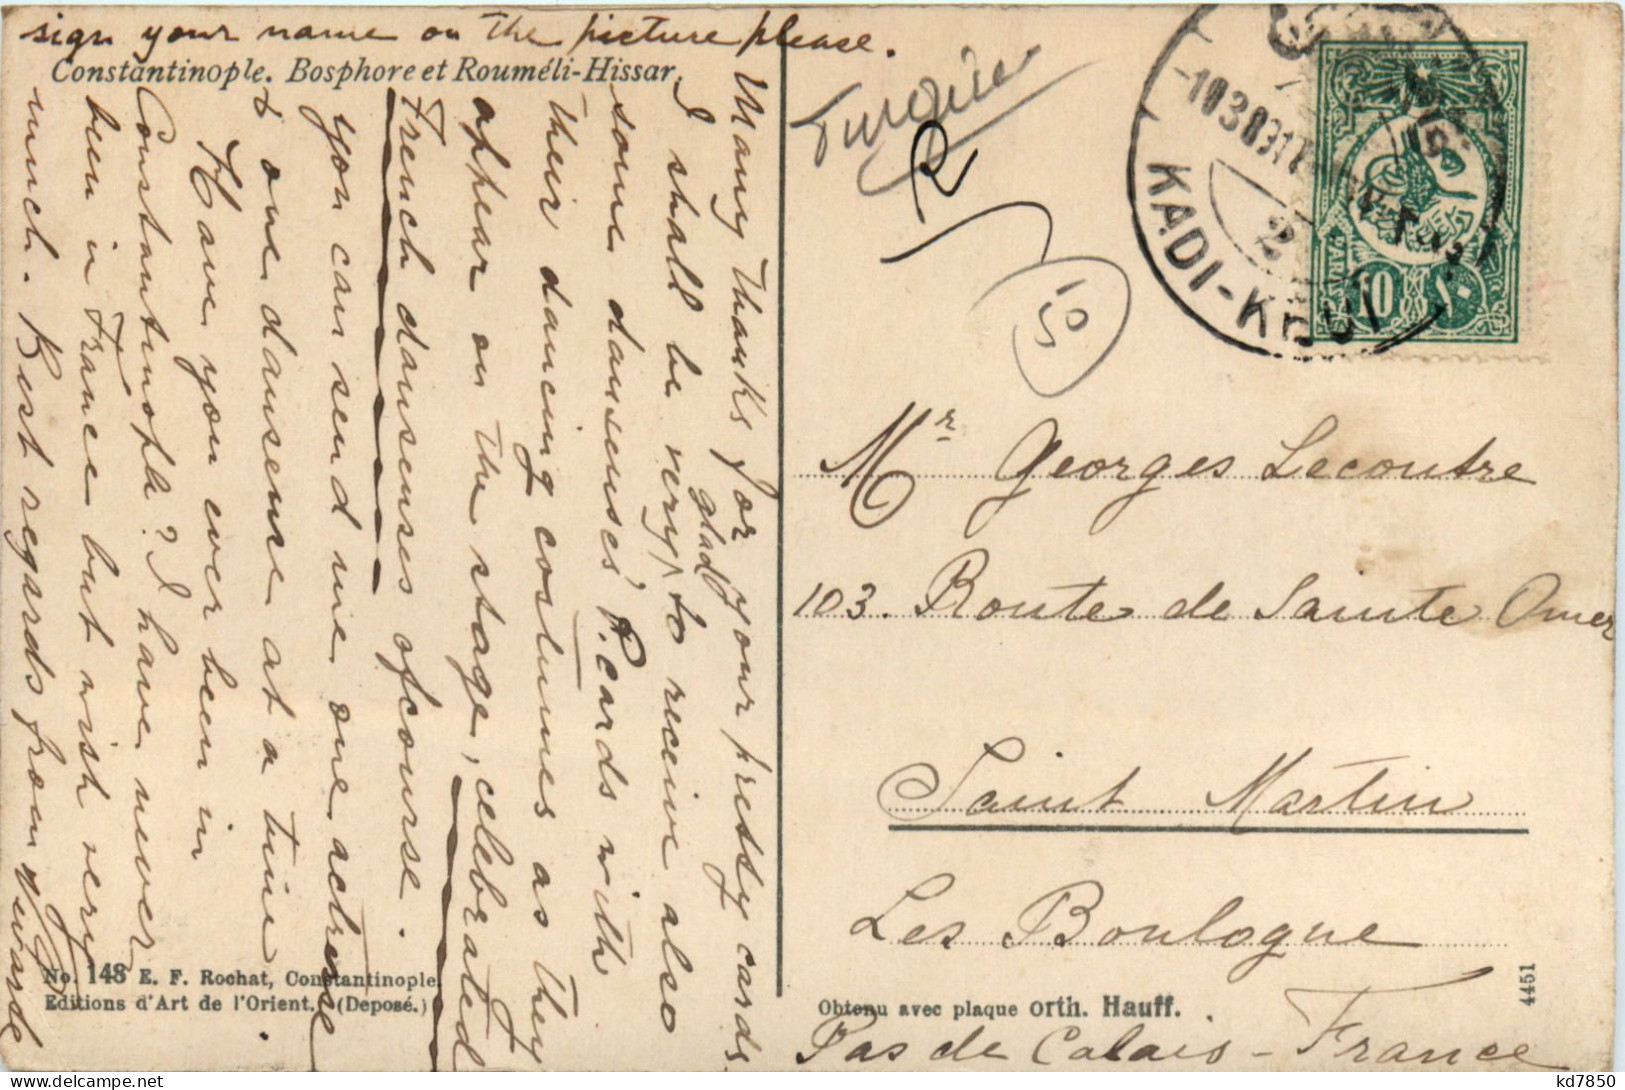 sign your name on the picture please.
Constantinople. Bosphore et Rouméli-Hissar.
Many thanks for your pretty cards
I shall be very glad to receive also
some danseuses' P. cards with
their dancing costumes as they
appear on the stage, celebrated
French danseuses of course.
you can send me one actress
& one danseuse at a time.
Have you ever been in
Constantinople? I have never
been in France but wish very
much. Best regards from
No. 148 E. F. Rochat, Constantinople.
Editions d'Art de l'Orient. (Deposé.)
Turquie
R
10
KADI-KEUI
2
10
PARA
١٠
Mr Georges Lecoutre
103. Route de Sainte Omer
Saint Martin
Les Boulogne
Pas de Calais - France
Obtenu avec plaque Orth. Hauff.
4451
kd7850